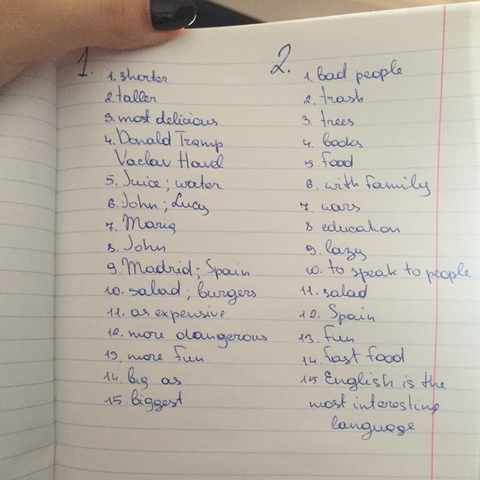 1.
1. shorter
2. taller
3. most delicious
4. Donald Tramp
Vaclav Havel
5. Juice; water
6. John; Lucy
7. Maria
8. John
9. Madrid; Spain
10. salad; burgers
11. as expensive
12. more dangerous
13. more fun
14. big as
15. biggest
2.
1. bad people
2. trash
3. trees
4. books
5. food
6. with family
7. wars
8. education
9. lazy
10. to speak to people
11. salad
12. Spain
13. fun
14. fast food
15 English is the
most interesting
language